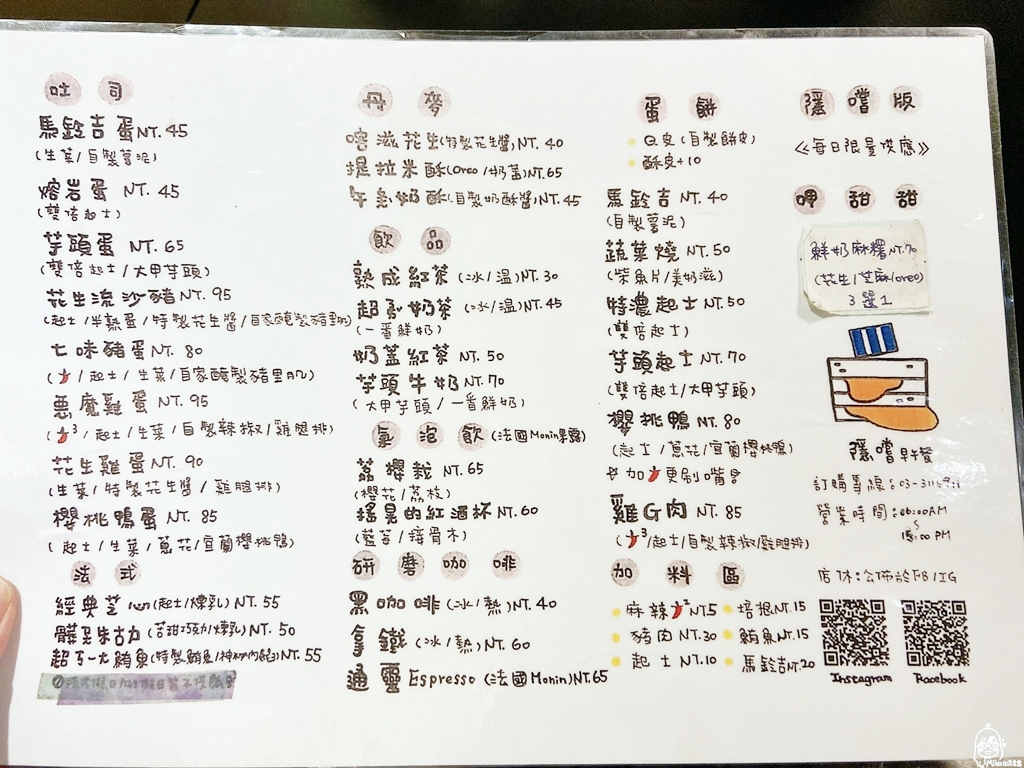 吐司
馬鈴吉蛋NT. 45
(生菜/自製薯泥)
熔岩蛋 NT. 45
(雙倍起士)
芋頭蛋 NT. 65
(雙倍起士/大甲芋頭)
花生流沙豬NT. 95
(起士/半熟蛋/特製花生醬/自家醃製豬里肌)
七味豬蛋NT. 80
(/起士/生菜/自家醃製豬里肌)
惡魔雞蛋NT. 95
(3/起士/生菜/自製辣椒/雞腿排)
花生雞蛋NT. 90
(生菜/特製花生醬/雞腿排)
櫻桃鴨蛋NT. 85
(起士/生菜/蔥花/宜蘭櫻桃鴨)
法式
經典芝心(起士/煉乳)NT. 55
髒呆朱古力(苦甜巧克力/煉乳)NT. 50
超ㄎ一ㄤ鮪魚(特製鮪魚)NT. 55
丹麥
喀滋花生(特製花生醬)NT. 40
提拉米酥(Oreo/奶蓋)NT.65
午急奶酥(自製奶酥醬)NT. 45
飲品
熟成紅茶(冰/溫)NT.30
超ㄋㄟ奶茶(冰/溫)NT.45
(一番鮮奶)
奶蓋紅茶NT. 50
芋頭牛奶NT.70
(大甲芋頭/一番鮮奶)
氣泡飲(法國Monin果露)
荔櫻栽NT. 65
(櫻花/荔枝)
搖晃的紅酒杯NT. 60
(藍莓/接骨木)
研磨咖啡
黑咖啡(冰/熱)NT. 40
拿鐵(冰/熱)NT. 60
通靈Espresso(法國Monin)NT.65
蛋餅
Q皮(自製餅皮)
酥皮+10
馬鈴吉NT. 40
(自製薯泥)
蔬菜燒NT. 50
(柴魚片/美奶滋)
特濃起士NT. 50
(雙倍起士)
芋頭起士NT. 70
(雙倍起士/大甲芋頭)
櫻桃鴨NT. 80
(起士/蔥花/宜蘭櫻桃鴨)
加更刷嘴
雞G肉NT. 85
(3/起士/自製辣椒/雞腿排)
加料區
麻辣2NT.5
培根NT.15
豬肉NT.30
鮪魚NT.15
起士NT.10
馬鈴吉NT.20
隱嚐版
《每日限量供應》
呷甜甜
鮮奶麻糬NT.70
(花生/芝麻/oreo)
3選1
隱嚐早餐
訂購專線:03-311
營業時間:06:00AM
~
15:00PM
店休:公佈於FB/IG
Instagram
Facebook